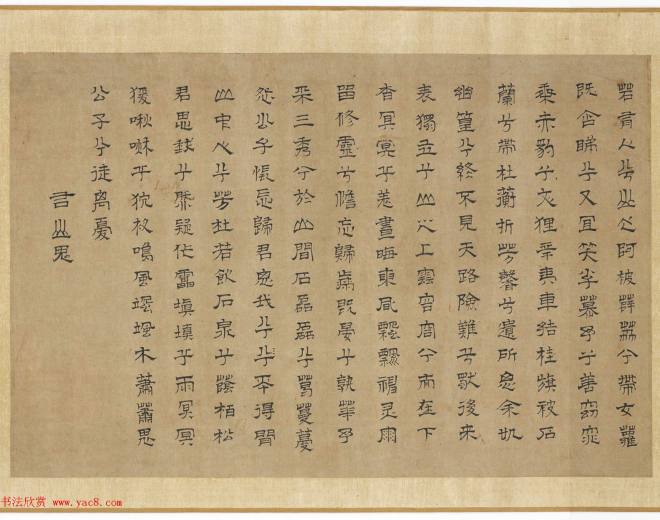 若有人兮山之阿被薜荔兮帶女蘿
既含睇兮又宜笑子慕予兮善窈窕
乘赤豹兮文狸辛夷車結桂旗被石
蘭兮帶杜蘅折芳馨兮遺所思余処
幽篁兮終不見天路險難兮獨後來
表獨立兮山之上雲容容兮而在下
杳冥冥兮羌晝晦東風飄飄神靈雨
留脩靈兮憺忘歸歲既晏兮孰華予
采三秀兮於山間石磊磊兮葛蔓蔓
怨公子悵忘歸君思我兮兮不得閒
山中人兮芳杜若飲石泉兮蔭柏松
君思我兮然疑作靁填填兮雨冥冥
猨啾啾乎狖夜鳴風颯颯木蕭蕭思
公子兮徒離憂
右山鬼
书法欣赏 www.yac8.com